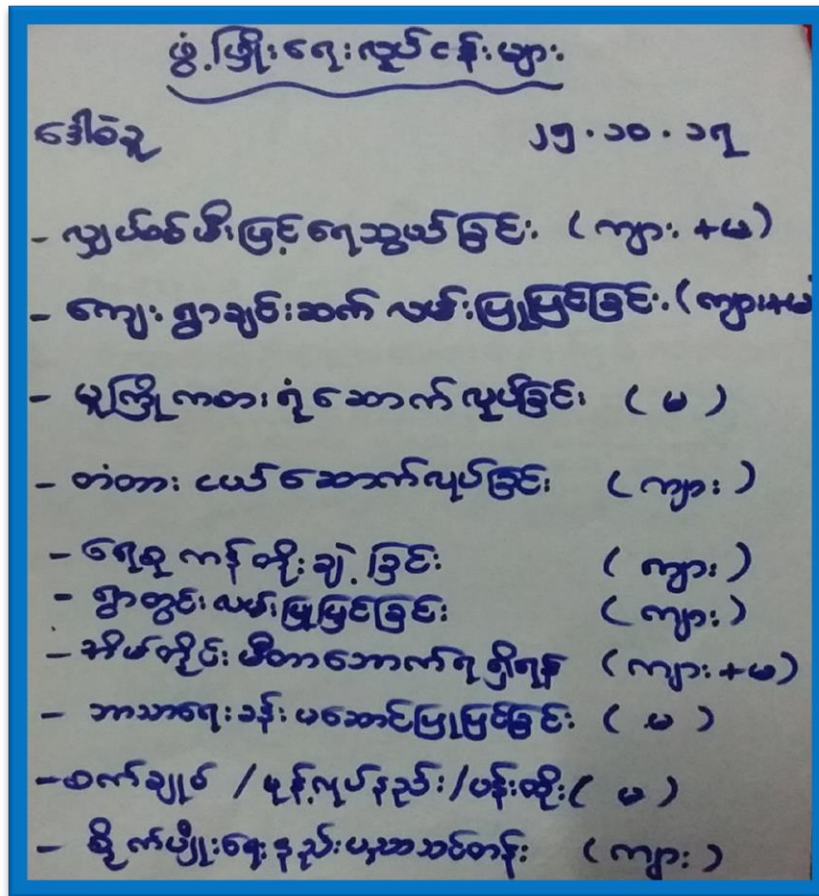 ဖွံ့ဖြိုးရေးလုပ်ငန်းများ
ဒေါစံသူ ၂၅.၁၀.၁၇
- လျှပ်စစ်မီးဖြင့် ရေသွယ်ခြင်း (ကျား+မ)
- ကျေးရွာချင်းဆက် လမ်းပြုပြင်ခြင်း (ကျား+မ
- မူကြိုကစားရုံဆောက်လုပ်ခြင်း (မ)
- တံတားငယ်ဆောက်လုပ်ခြင်း (ကျား)
- ရေစုကန်တိုးချဲ့ခြင်း (ကျား)
- ရွာတွင်းလမ်းပြုပြင်ခြင်း (ကျား)
- အိမ်တိုင်းမီတာဘောက်ရရှိရန် (ကျား+မ)
- ဘာသာရေးခန်းမဆောင်ပြုပြင်ခြင်း (မ)
- စက်ချုပ်/မုန့်လုပ်နည်း/ပန်းထိုး (မ)
- စိုက်ပျိုးရေးနည်းပညာသင်တန်း (ကျား)